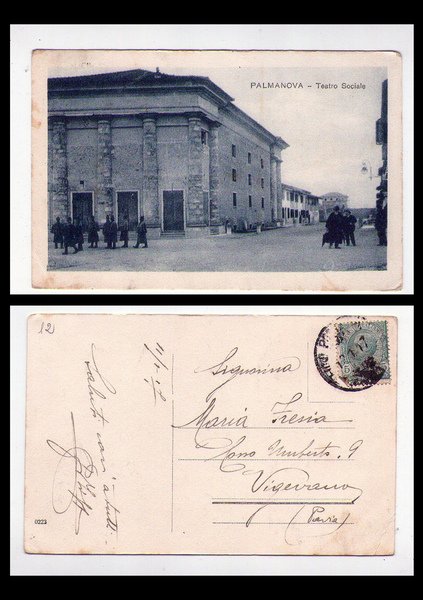 PALMANOVA - Teatro Sociale
12
Saluti cari a tutti
Signorina
Maria Fresia
Corso Umberto, 9
Vigevano
(Pavia)
0223